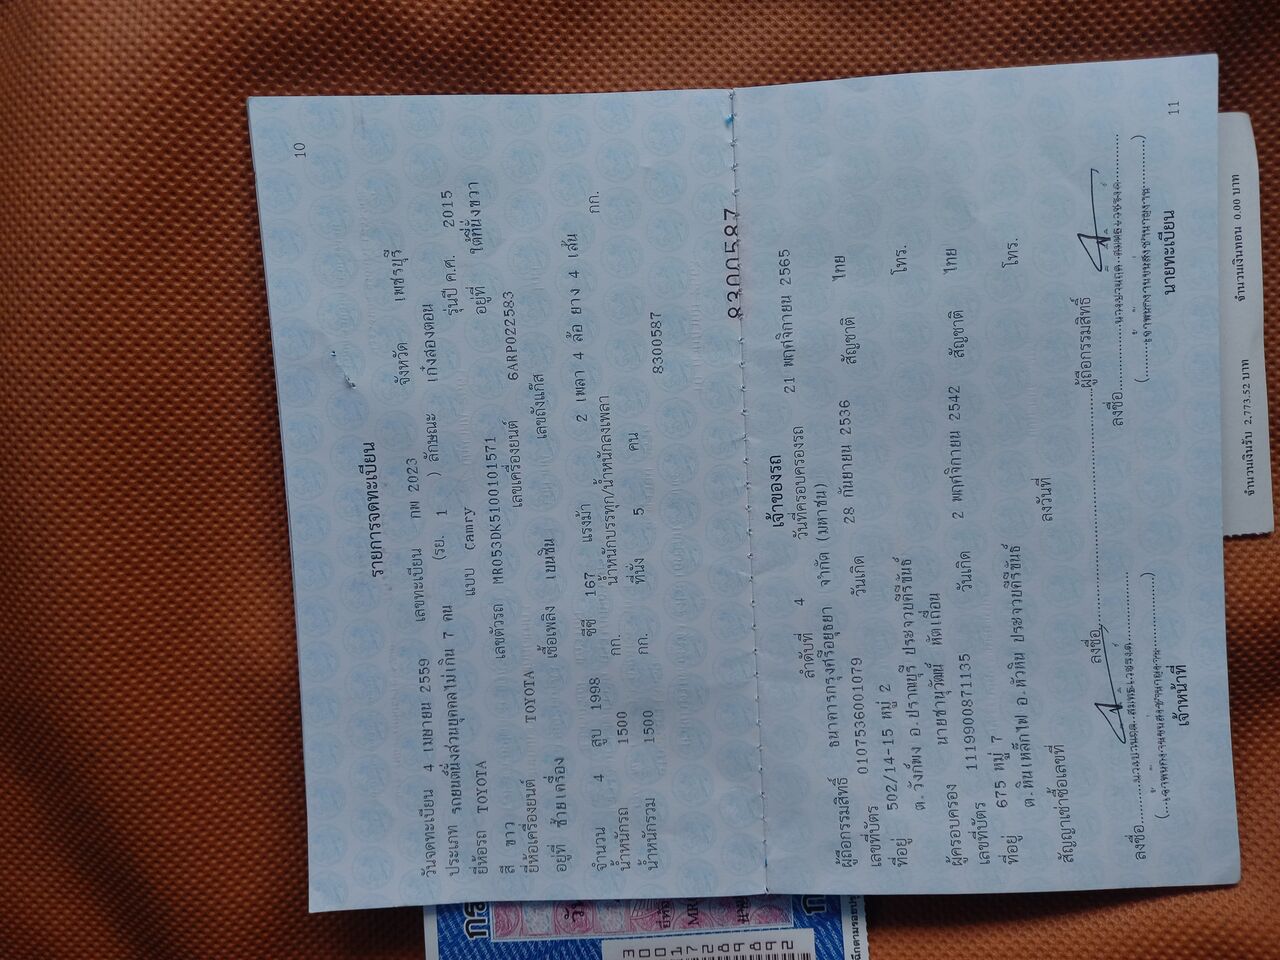 10
รายการจดทะเบียน
วันจดทะเบียน 4 เมษายน 2559 เลขทะเบียน กพ 2023 จังหวัด เพชรบุรี
ประเภท รถยนต์นั่งส่วนบุคคลไม่เกิน 7 คน (รย. 1 ) ลักษณะ เก๋งสองตอน
ยี่ห้อรถ TOYOTA แบบ Camry รุ่นปี ค.ศ. 2015
สี ขาว เลขตัวรถ MR053DK5100101571 อยู่ที่ ใต้ที่นั่งขวา
ยี่ห้อเครื่องยนต์ TOYOTA เลขเครื่องยนต์ 6ARP022583
อยู่ที่ ซ้ายเครื่อง เชื้อเพลิง เบนซิน เลขถังแก๊ส
จำนวน 4 สูบ 1998 ซีซี 167 แรงม้า 2 เพลา 4 ล้อ ยาง 4 เส้น
น้ำหนักรถ 1500 กก. น้ำหนักบรรทุก/น้ำหนักลงเพลา กก.
น้ำหนักรวม 1500 กก. ที่นั่ง 5 คน 8300587
8300587
เจ้าของรถ
ลำดับที่ 4 วันที่ครอบครองรถ 21 พฤศจิกายน 2565
ผู้ถือกรรมสิทธิ์ ธนาคารกรุงศรีอยุธยา จำกัด (มหาชน)
เลขที่บัตร 0107536001079 วันเกิด 28 กันยายน 2536 สัญชาติ ไทย
ที่อยู่ 502/14-15 หมู่ 2
ต.วังก์พง อ.ปราณบุรี ประจวบคีรีขันธ์ โทร.
ผู้ครอบครอง นายชานุวัฒน์ หัดเถื่อน
เลขที่บัตร 1119900871135 วันเกิด 2 พฤศจิกายน 2542 สัญชาติ ไทย
ที่อยู่ 675 หมู่ 7
ต.หินเหล็กไฟ อ.หัวหิน ประจวบคีรีขันธ์ โทร.
สัญญาเช่าซื้อเลขที่ ลงวันที่
ลงชื่อ ผู้ถือกรรมสิทธิ์
ลงชื่อ ลงชื่อ
เจ้าหน้าที่ นายทะเบียน
11
จำนวนเงินรับ 2,773.52 บาท จำนวนเงินทอน 0.00 บาท